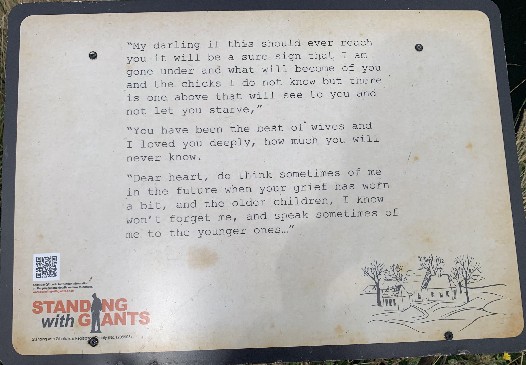 "My darling if this should ever reach
you it will be a sure sign that I am
gone under and what will become of you
and the chicks I do not know but there
is one above that will see to you and
not let you starve,"
"You have been the best of wives and
I loved you deeply, how much you will
never know.
"Dear heart, do think sometimes of me
in the future when your grief has worn
a bit, and the older children, I know
won't forget me, and speak sometimes of
me to the younger ones…"
STANDING
with GIANTS